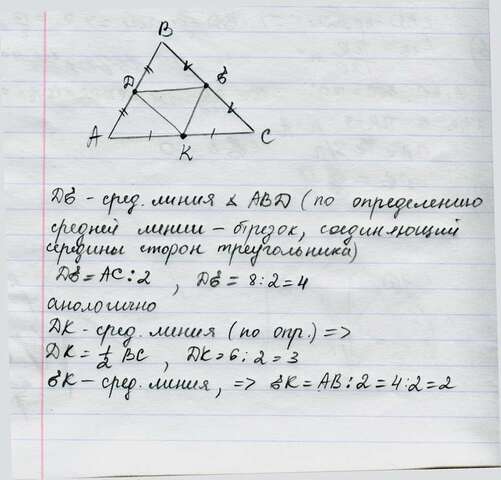 B
Д
E
A
K
C
ДE - сред. линия △ ABД (по определению
средней линии - отрезок, соединяющий
середины сторон треугольника)
ДE = AC : 2 , ДE = 8 : 2 = 4
анологично
ДK - сред. линия (по опр.) =>
ДK = 1/2 BC , ДK = 6 : 2 = 3
EK - сред. линия, => EK = AB : 2 = 4 : 2 = 2